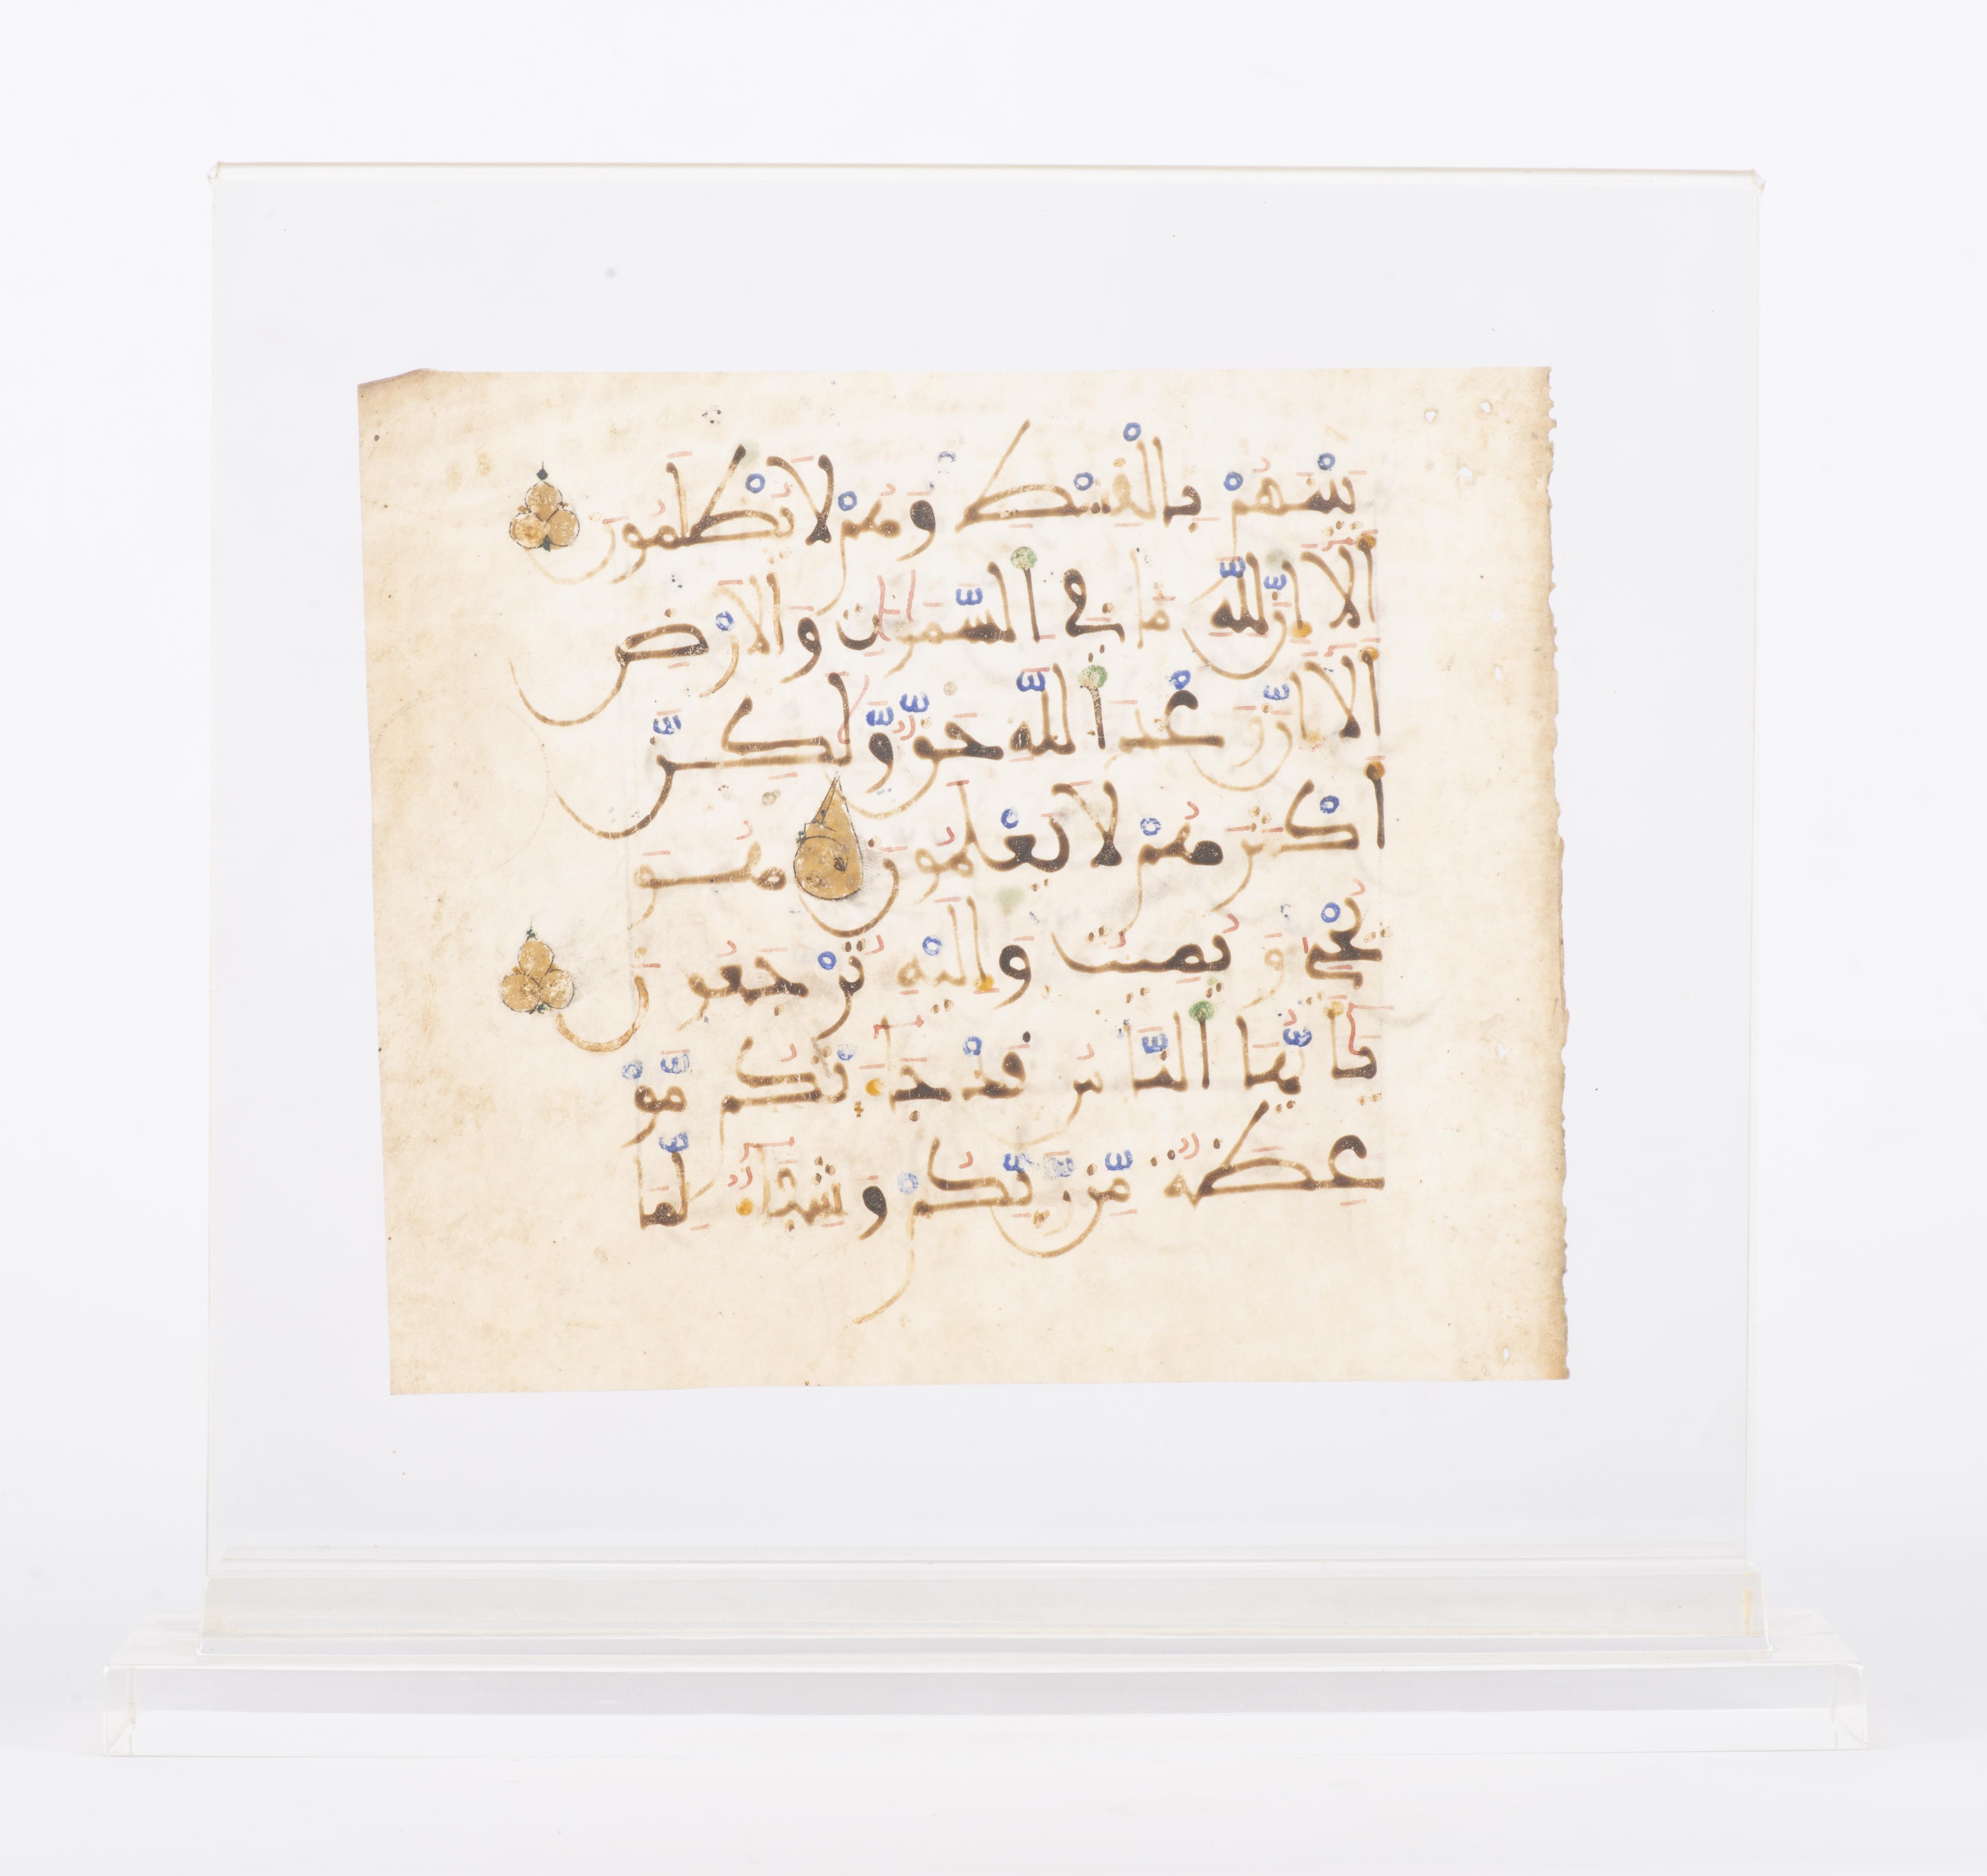 يْنَهُمْ بِالْقِسْطِ وَهُمْ لَا يُظْلَمُونَ
أَلَا إِنَّ لِلَّهِ مَا فِي السَّمَٰوَٰتِ وَالْأَرْضِ
أَلَا إِنَّ وَعْدَ اللَّهِ حَقٌّ وَلَٰكِنَّ
أَكْثَرَهُمْ لَا يَعْلَمُونَ هُوَ
يُحْيِي وَيُمِيتُ وَإِلَيْهِ تُرْجَعُونَ
يَٰأَيُّهَا النَّاسُ قَدْ جَاءَتْكُم مَّوْ
عِظَةٌ مِّن رَّبِّكُمْ وَشِفَاءٌ لِّمَا